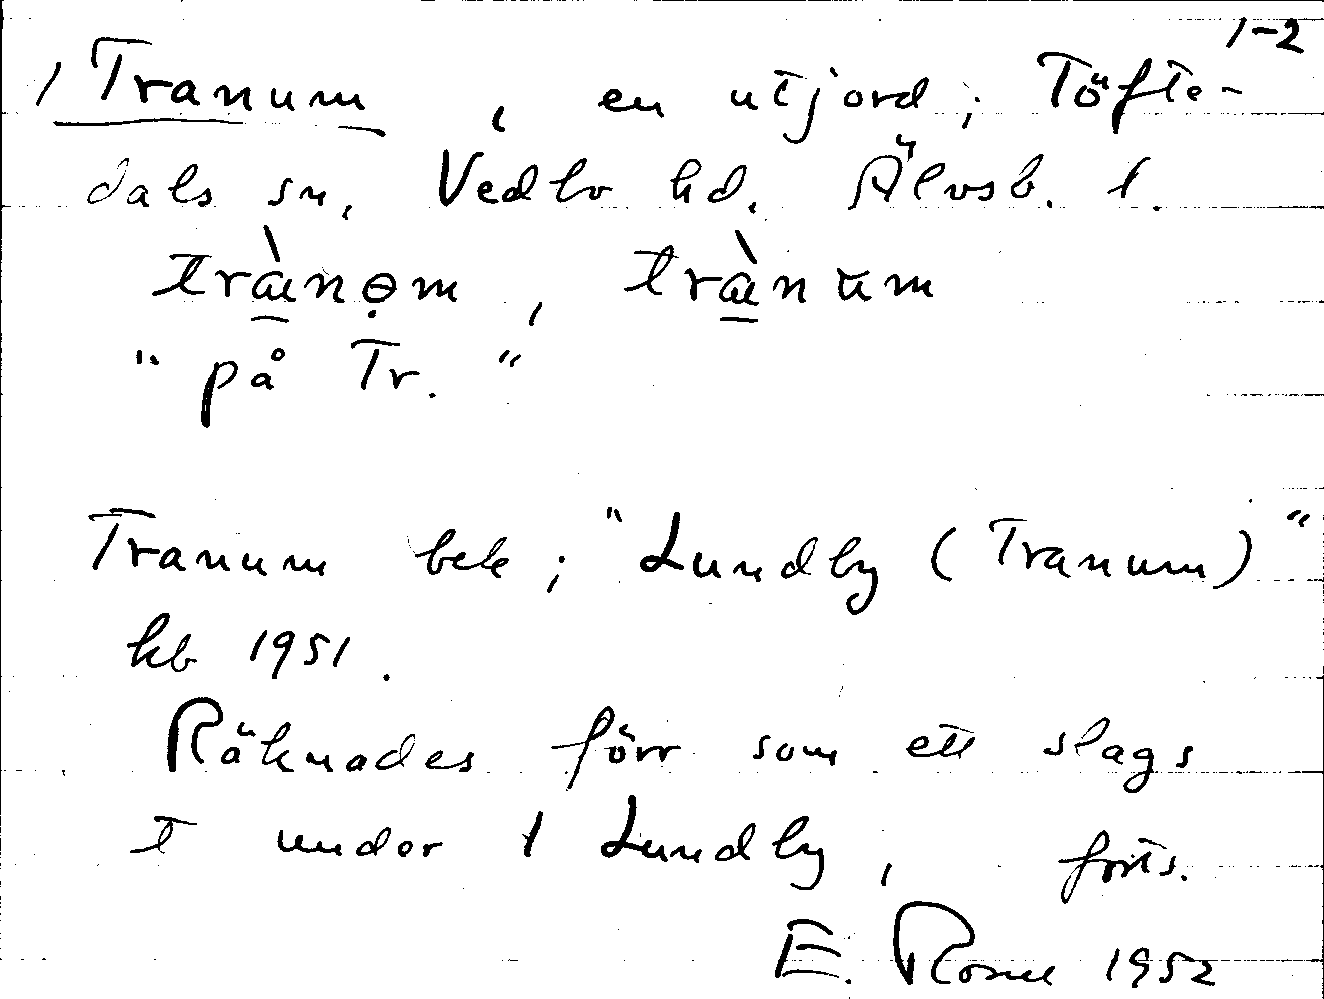 1-2
1 Tranum, en utjord; Töfte-
dals sn, Vedbo hd. Älvsb. l.
trànọm, trànum
"på Tr."
Tranum bek; "Lundby (Tranum)"
kb 1951.
Räknades förr som ett slags
t under 1 Lundby, forts.
E. 1952